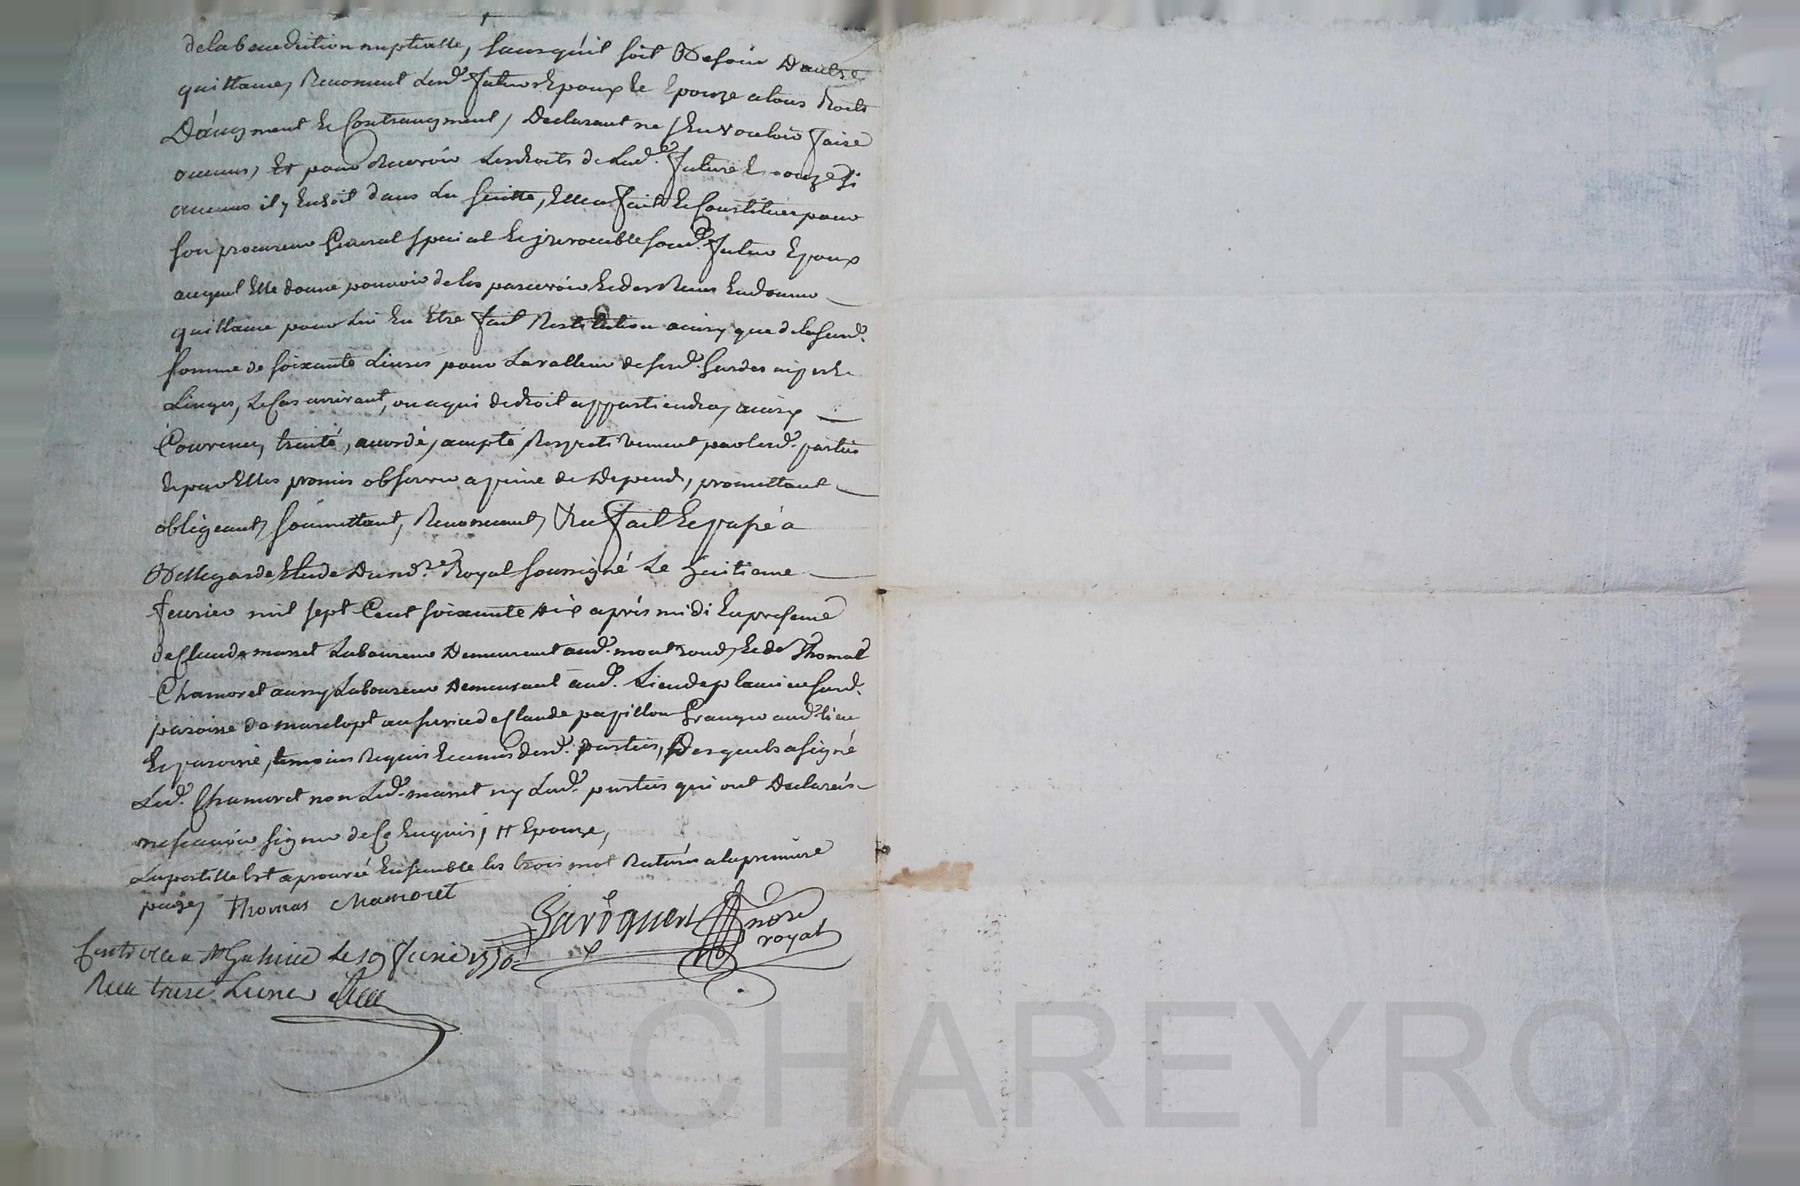 de la benediction nuptialle, sans qu'il soit Besoin Dautre
quittance, Renoncent Lesd. futurs Epoux Et Epouze a tous Droits
D'augment Et Contraugment, Declarant ne s'En vouloir faire
aucuns, Et pour Recevoir Les droits de Lad.e future Epouze si
aucuns il y Ensoit dans La suitte, Elle a fait Et Constitué pour
son procureur General special Et irrevocable sond. futur Epoux
auquel Elle donne pouvoir de les percevoir Et des Reçus En donner
quittance pour Lui En Etre fait Restitution ainsy que de la susd.
somme de soixante Livres pour La valleur de sesd. hardes nipes Et
Linges, Le Cas arrivant, ou a qui de droit appartiendra, ainsy
Convenu, traité, acordé, acepté, Respectivement par Lesd. parties
Et par Elles promis observer a peine de Depens, promettant
obligeant, soumettant, Renonçant, &c fait Et passé a
Bellegarde Etude Du no.re Royal soussigné Le huitieme
fevrier mil sept Cent soixante dix après midi En presence
de Claude masset Laboureur Demeurant aud. montrond, Et de Thomas
Chamoret aussy Laboureur Demeurant aud. Lieu de susd.
paroisse de marclopt au service de Claude papillon Granger aud. lieu
Et paroisse, temoins Requis Et connus desd. parties, Desquels a signé
Led. Chamoret non Led. masset ny Lesd. parties qui ont Declarés
ne scavoir signer de Ce Enquis, # Epouze,
La postille Est aprouvé Ensemble les trois mot Raturés a la premiere
page, Thomas Chamoret
Garoquen nore
royal
Controlle a St Galmier Le 19 fevrier 1770
Reçu treize Livres
CHAREYRON